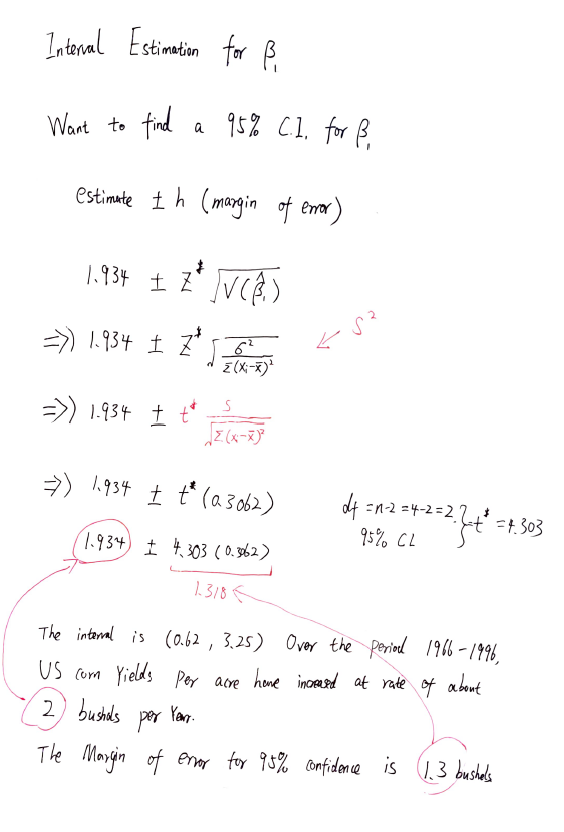 Interval Estimation for β₁
Want to find a 95% C.I. for β₁
estimate ± h (margin of error)
1.934 ± Z* √V(β̂₁)
⇒) 1.934 ± Z* √(σ² / Σ(xᵢ-x̄)²) ← S²
⇒) 1.934 ± t* S / √Σ(xᵢ-x̄)²
⇒) 1.934 ± t* (0.3062)
df = n-2 = 4-2 = 2. } t* = 4.303
95% CL
1.934 ± 4.303 (0.3062)
1.318
The interval is (0.62, 3.25) Over the period 1966-1996,
US corn Yields Per acre have increased at rate of about
2 bushels per Year.
The Margin of error for 95% confidence is 1.3 bushels